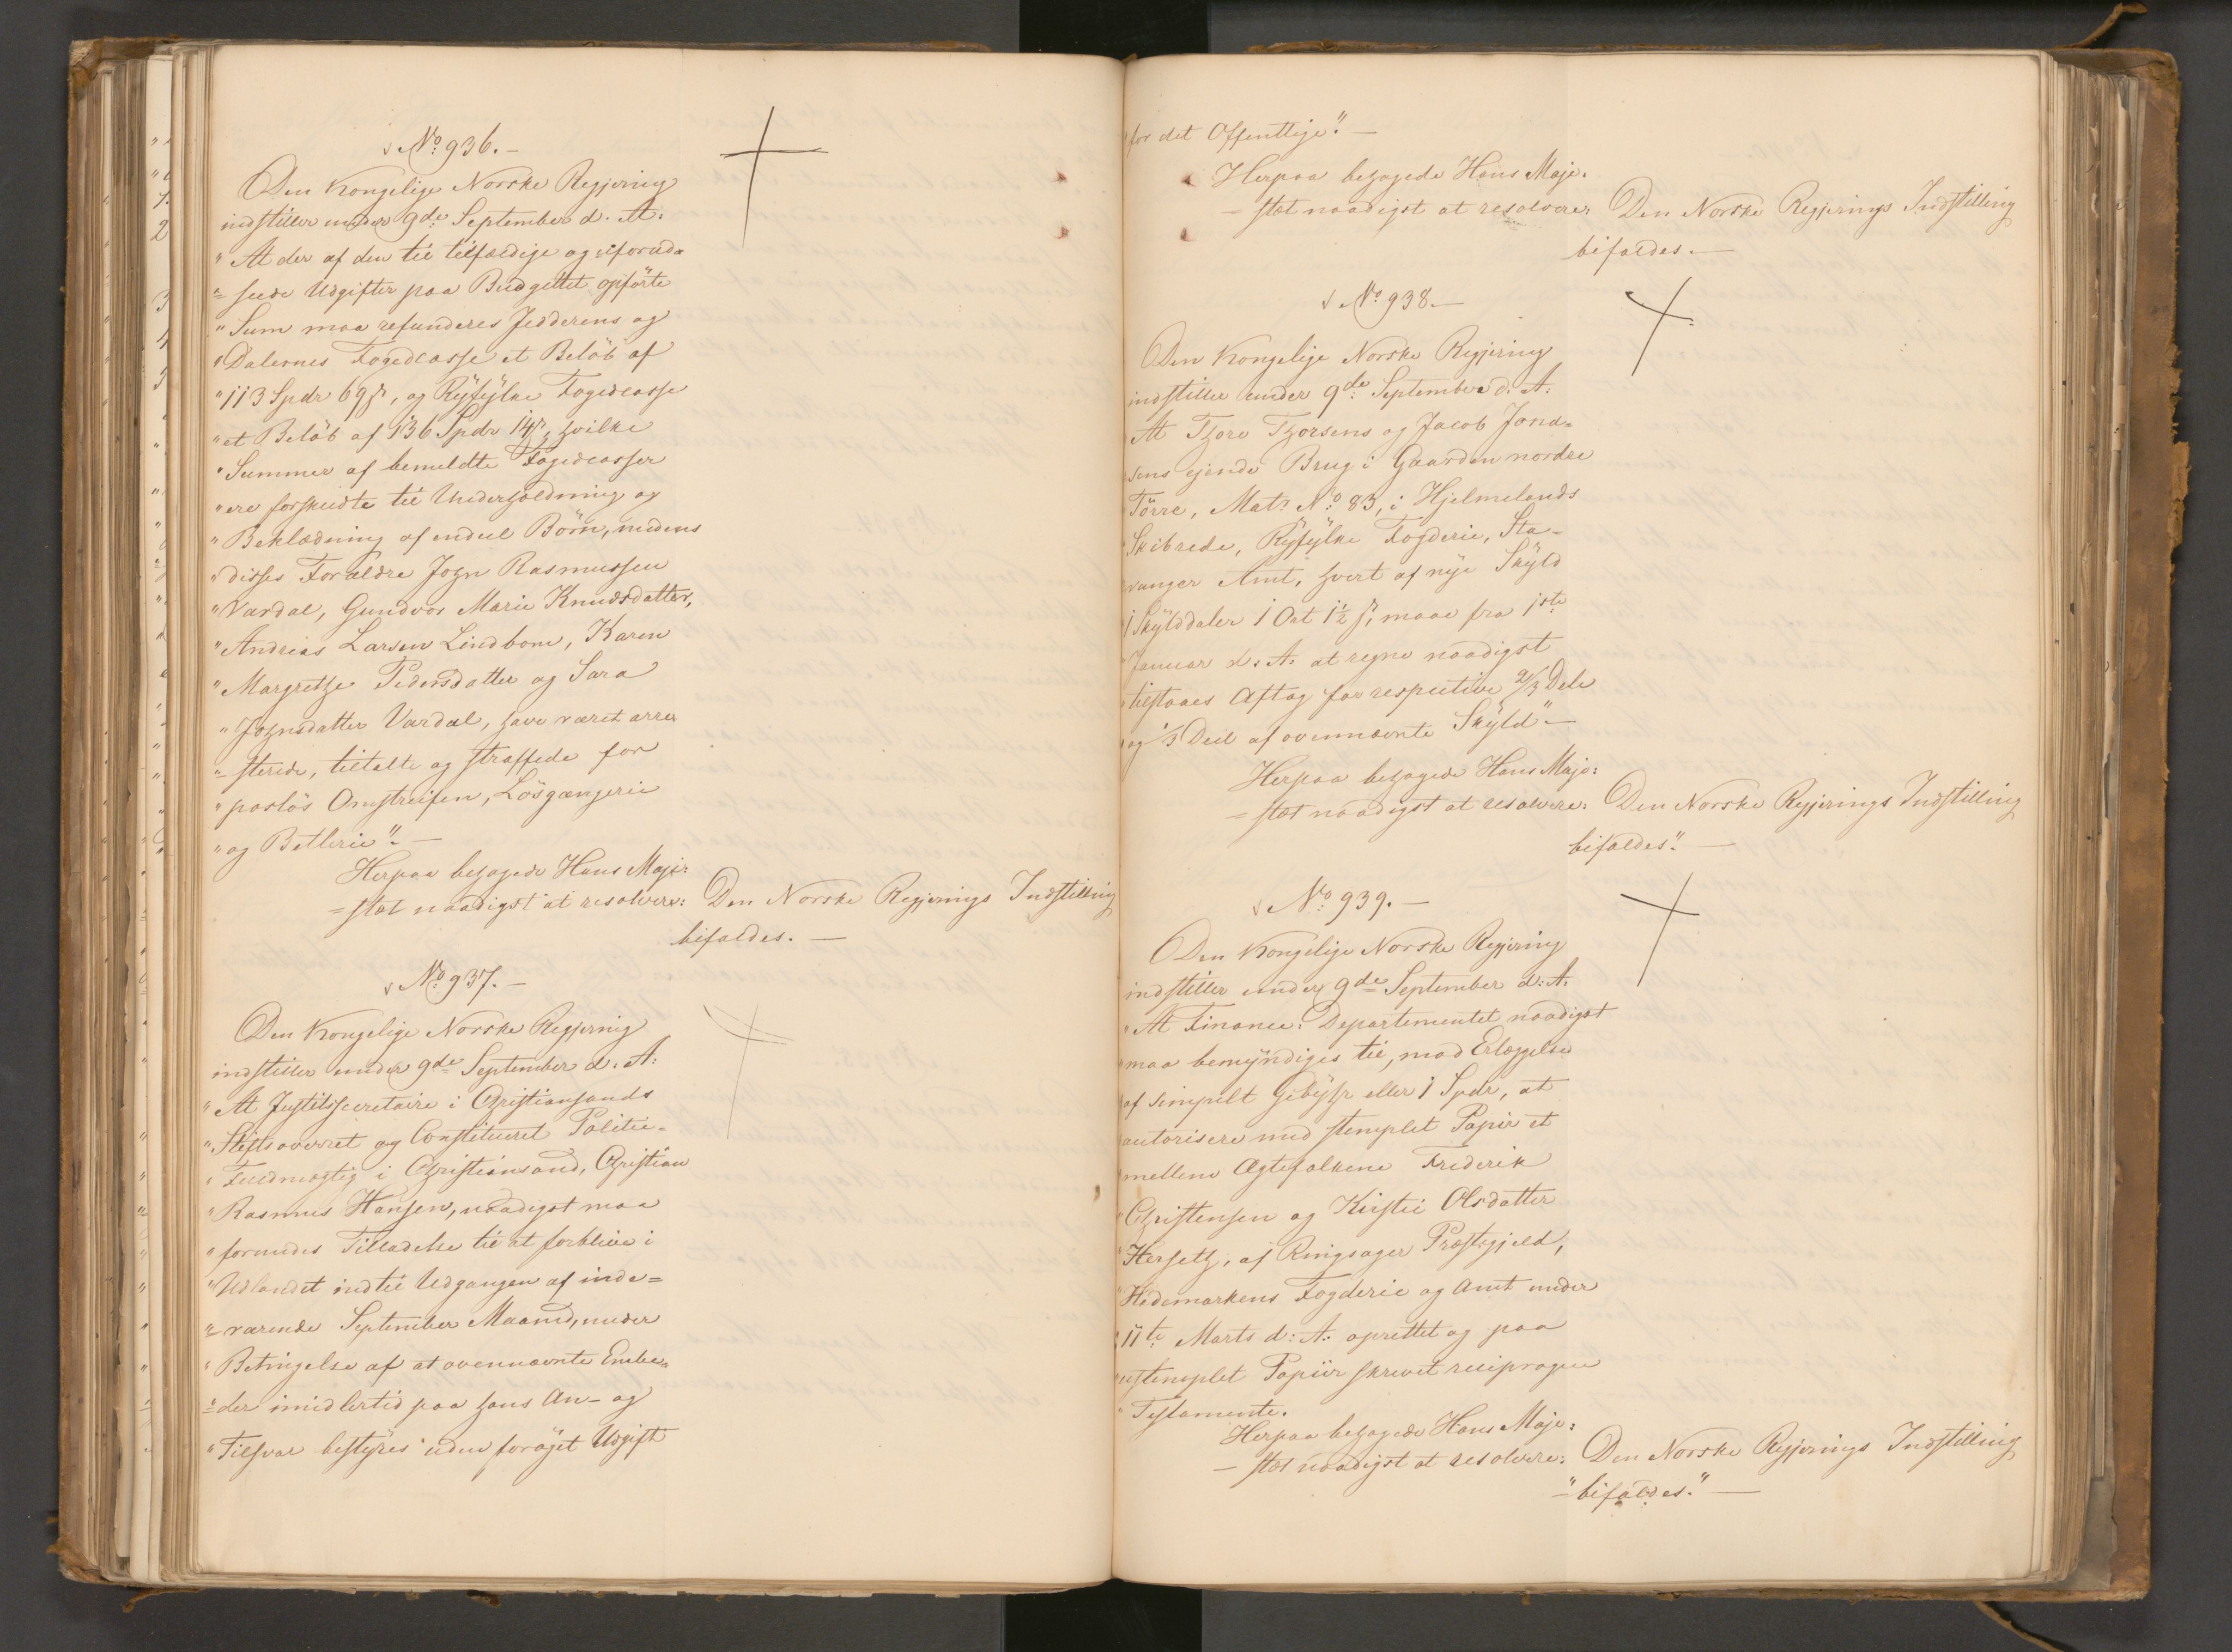 No 936.-
Den Kongelige Norske Regjering
indstiller under 9de September d. A.
"At der af den til tilfældige og uforud-
"=seede Udgifter paa Budgettet opførte
"Sum maa refunderes Jedderens og
"Dalernes Fogedcasse et Beløb af
"113 Spdr 69 ß, og Ryfylke Fogedcasse
"et Beløb af 136 Spdr 14 ß, hvilke
"Summer af bemeldte Fogedcasser
"ere forskudte til Underholdning og
"Beklædning af endeel Børn, medens
"disses Forældre John Rasmussen
"Vardal, Gundvor Marie Knudsdatter,
"Andreas Larsen Lindbom, Karen
"Margrethe Pedersdatter og Sara
"Johnsdatter Vardal, have været arre
"=sterede, tiltalte og straffede for
"pasløs Omstreifen, Løsgængerie
"og Betlerie".-
Herpaa behagede Hans Maje:
=stæt naadigst at resolvere: Den Norske Regjerings Indstilling
bifaldes. —
No 937.-
Den Kongelige Norske Regjering
indstiller under 9de September d. A:
"At Justitssecretaire i Christiansands
"Stiftsoverret og Constitueret Politie-
"Fuldmægtig i Christiansand, Christian
"Rasmus Hansen, naadigst maa
"forundes Tilladelse til at forblive i
"Udlandet indtil Udgangen af inde=
"=værende September Maaned, under
"Betingelse af at ovennævnte Embe=
"=der imidlertid paa hans An- og
"Tilsvar bestyres uden forøget Udgift
"for det Offentlige". —
Herpaa behagede Hans Maje.
=stæt naadigst at resolvere: Den Norske Regjerings Indstilling
bifaldes. —
No 938. —
Den Kongelige Norske Regjering
indstiller under 9de September d. A:
At Thore Thorsens og Jacob Jona=
sens eiende Brug i Gaarden nordre
Tørre, Matr No 83, i Hjelmelands
Skibrede, Ryfylke Fogderie, Sta-
vanger Amt, hvert af nye Skyld
1 Skylddaler 1 Ort 1½ ß, maa fra 1ste
Januar d: A: at regne naadigst
tilstaaes Aftag for respective 2/3 Dele
og 1/3 Deel af ovennævnte Skyld". —
Herpaa behagede Hans Maje:
=stæt naadigst at resolvere: Den Norske Regjerings Indstilling
bifaldes". —
No 939. —
Den Kongelige Norske Regjering
indstiller under 9de September d: A.
"At Finance: Departementet naadigst
"maa bemyndiges til, mod Erlæggelse
af simpelt Gebyhr eller 1 Spdr, at
autorisere med stemplet Papir et
mellem Ægtefolkene Frederik
"Christensen og Kirstie Olsdatter
"Herseth, af Ringsager Præstegjeld,
"Hedemarkens Fogderie og Amt under
"11te Marts d: A: oprettet og paa
"ustemplet Papiir skrevet reciproque
"Testamente.
Herpaa behagede Hans Maje:
=stæt naadigst at resolvere: Den Norske Regjerings Indstilling
"bifaldes". —